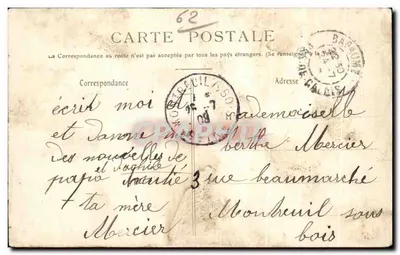 62
CARTE POSTALE
La Correspondance au recto n'est pas acceptée par tous les pays étrangers. (Se renseigner
Correspondance
Adresse
écris moi
et donne
des nouvelles de
papa
ta mère
Mercier
Mademoiselle
berthe Mercier
3 rue beaumarché
Montreuil sous
bois
16 -7
09